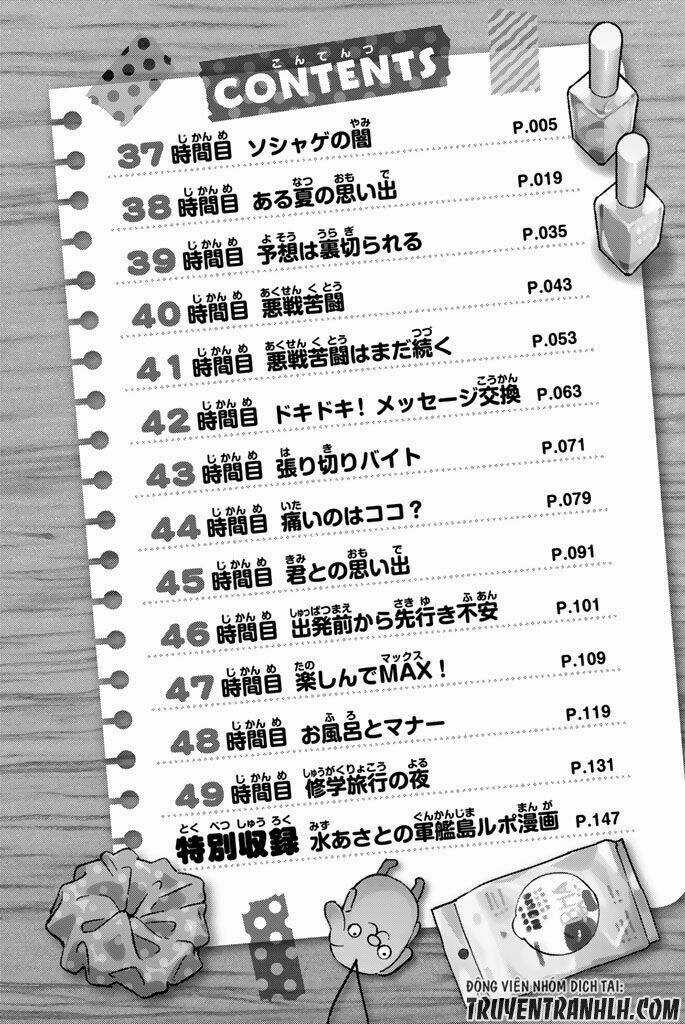 こんてんつ
CONTENTS
37時間目 ソシャゲの闇 P.005
38時間目 ある夏の思い出 P.019
39時間目 予想は裏切られる P.035
40時間目 悪戦苦闘 P.043
41時間目 悪戦苦闘はまだ続く P.053
42時間目 ドキドキ！メッセージ交換 P.063
43時間目 張り切りバイト P.071
44時間目 痛いのはココ？ P.079
45時間目 君との思い出 P.091
46時間目 出発前から先行き不安 P.101
47時間目 楽しんでMAX！ P.109
48時間目 お風呂とマナー P.119
49時間目 修学旅行の夜 P.131
特別収録 水あさとの軍艦島ルポ漫画 P.147
ĐỘNG VIÊN NHÓM DỊCH TẠI:
TRUYENTRANHLH.COM